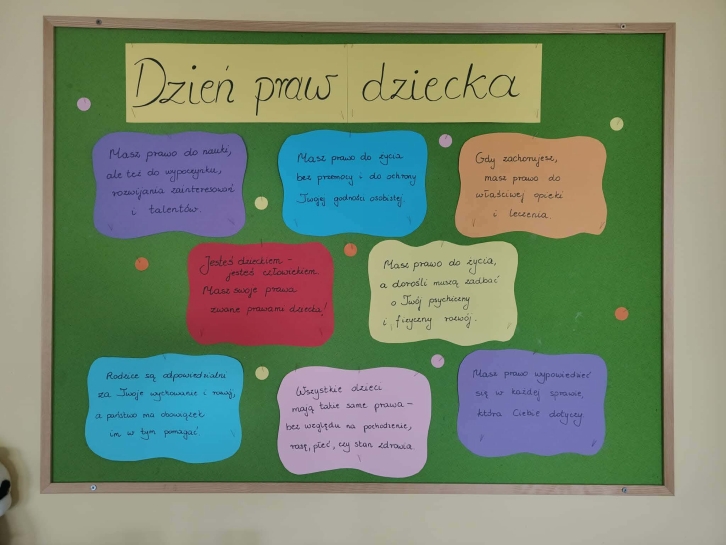 Dzień praw dziecka
Masz prawo do nauki,
ale też do wypoczynku,
rozwijania zainteresowań
i talentów.
Masz prawo do życia
bez przemocy i do ochrony
Twojej godności osobistej.
Gdy zachorujesz,
masz prawo do
właściwej opieki
i leczenia.
Jesteś dzieckiem -
jesteś człowiekiem.
Masz swoje prawa
zwane prawami dziecka!
Masz prawo do życia,
a dorośli muszą zadbać
o Twój psychiczny
i fizyczny rozwój.
Rodzice są odpowiedzialni
za Twoje wychowanie i rozwój,
a państwo ma obowiązek
im w tym pomagać.
Wszystkie dzieci
mają takie same prawa -
bez względu na pochodzenie,
rasę, płeć, czy stan zdrowia.
Masz prawo wypowiedzieć
się w każdej sprawie,
która Ciebie dotyczy.